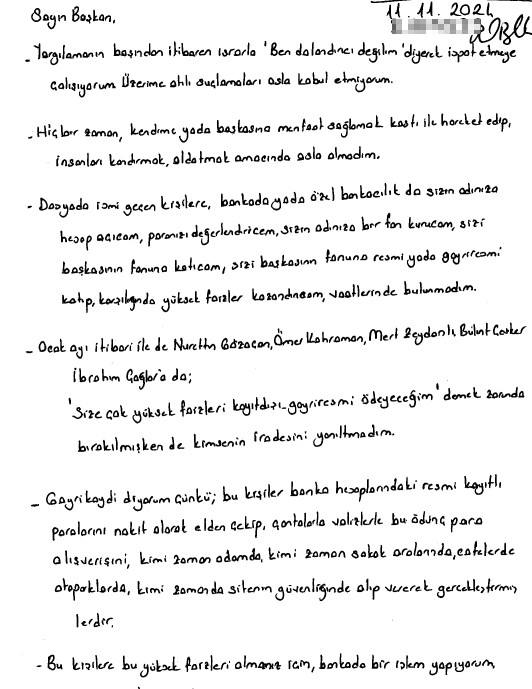 Sayın Başkan,
11.11.2024
- Yargılamanın başından itibaren ısrarla 'Ben dolandırıcı değilim' diyerek ispat etmeye
çalışıyorum Üzerime atılı suçlamaları asla kabul etmiyorum.
- Hiçbir zaman, kendime yada başkasına menfaat sağlamak kastı ile hareket edip,
insanları kandırmak, aldatmak amacında asla olmadım.
- Dosyada ismi geçen kişilere, bankada yada özel bankacılık da sizin adınıza
hesap açıcam, paranızı değerlendiricem, sizin adınıza bir fon kurucam, sizi
başkasının fonuna katıcam, sizi başkasının fonuna resmi yada gayriresmi
katıp, karşılığında yüksek faizler kazandırıcam, vaatlerinde bulunmadım.
- Ocak ayı itibari ile de Nurettin Gözacan, Ömer Kahraman, Mert Zeydanlı, Bülent Çevker
İbrahim Çağlar'a da;
'Size çok yüksek faizleri kayıtdışı - gayriresmi ödeyeceğim' demek zorunda
bırakılmışken de kimsenin iradesini yanıltmadım.
- Gayrikaydi diyorum çünkü; bu kişiler banka hesaplarındaki resmi kayıtlı
paralarını nakit olarak elden çekip, çantalarla valizlerle bu ödünç para
alışverişini, kimi zaman odamda, kimi zaman sokak aralarında, cafelerde
otoparklarda, kimi zamanda sitenin güvenliğinde alıp vererek gerçekleştirmiş
lerdir.
- Bu kişilere bu yüksek faizleri almanız için, bankada bir işlem yapıyorum